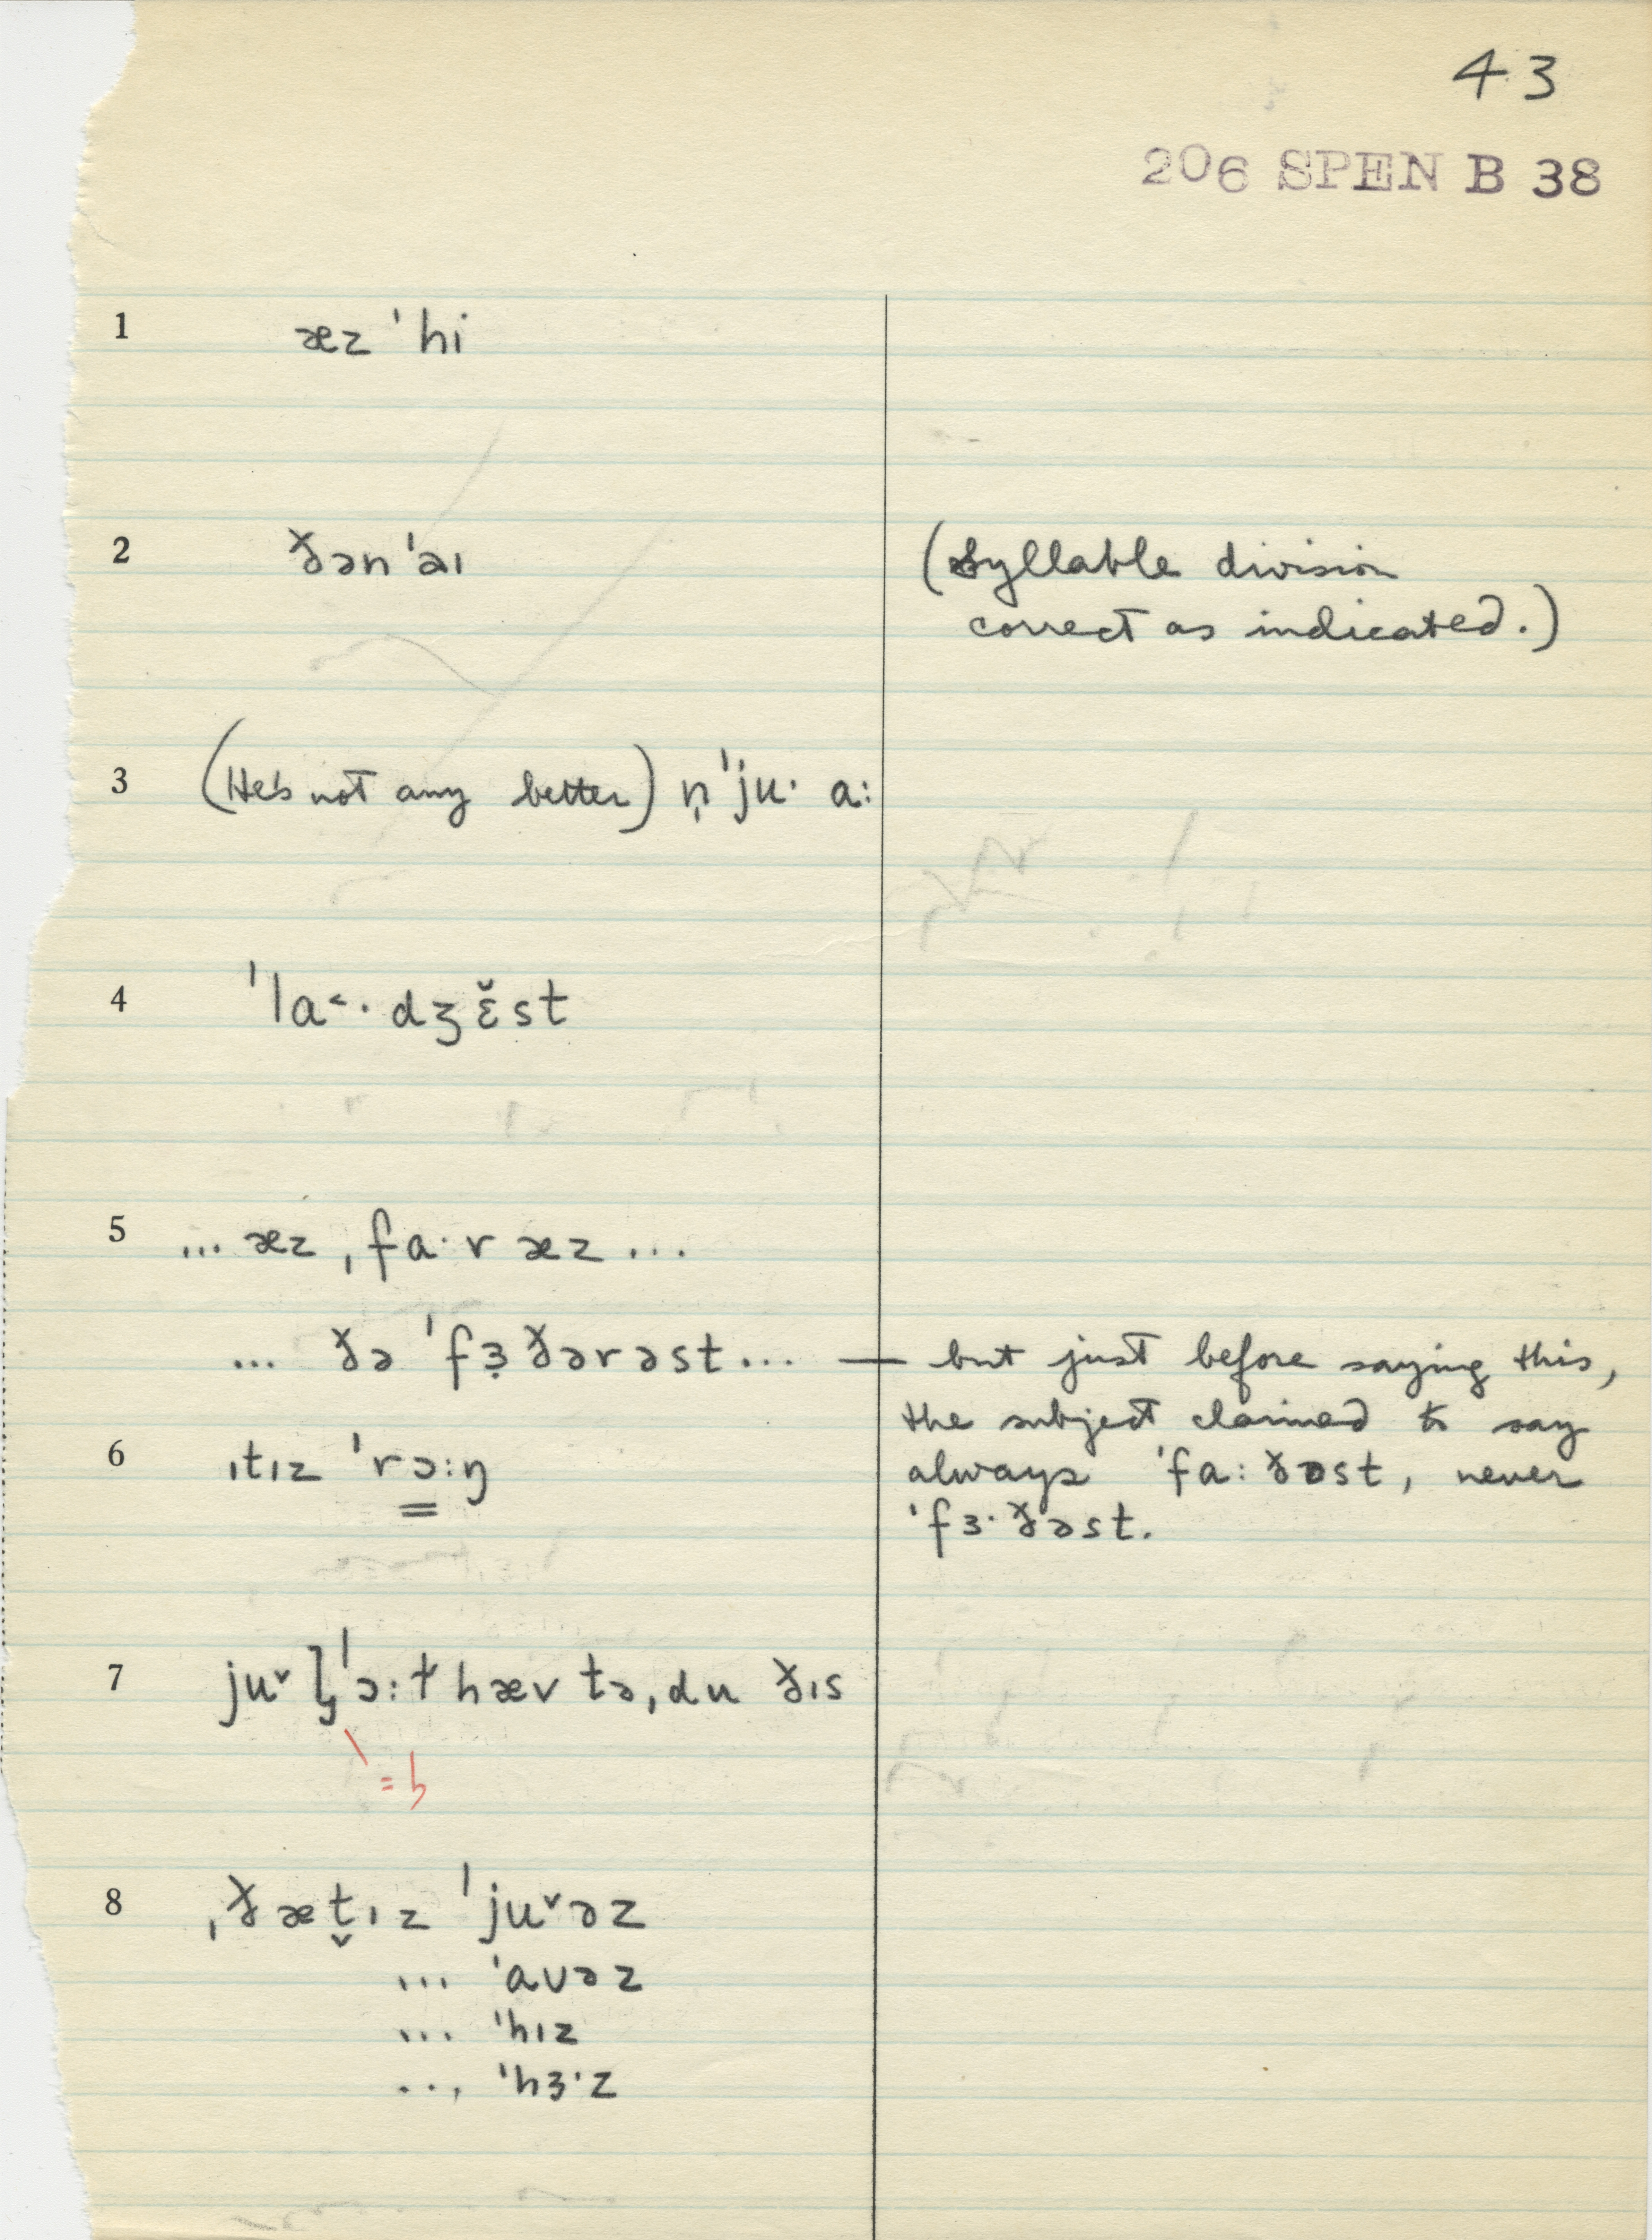 43
206 SPEN B 38
1 æz ˈhi
2 ðən ˈaɪ
(Syllable division
correct as indicated.)
3 (He's not any better) n̩ ˈju· a:
4 ˈla˂· dʒɛ̆st
5 ... æz ˌfa·r æz ...
... ðə ˈfɜ̣ðərəst ... — but just before saying this,
the subject claimed to say
6 ɪtɪz ˈrɔ:ŋ
always ˈfa: ðəst, never
ˈfɜ· ðəst.
7 ju˅ ˈɔ:t hæv tə ˌdu ðɪs
= b
8 ˌðæt̬ɪz ˈju˅əz
... ˈaʊəz
... ˈhɪz
... ˈhɜ·z